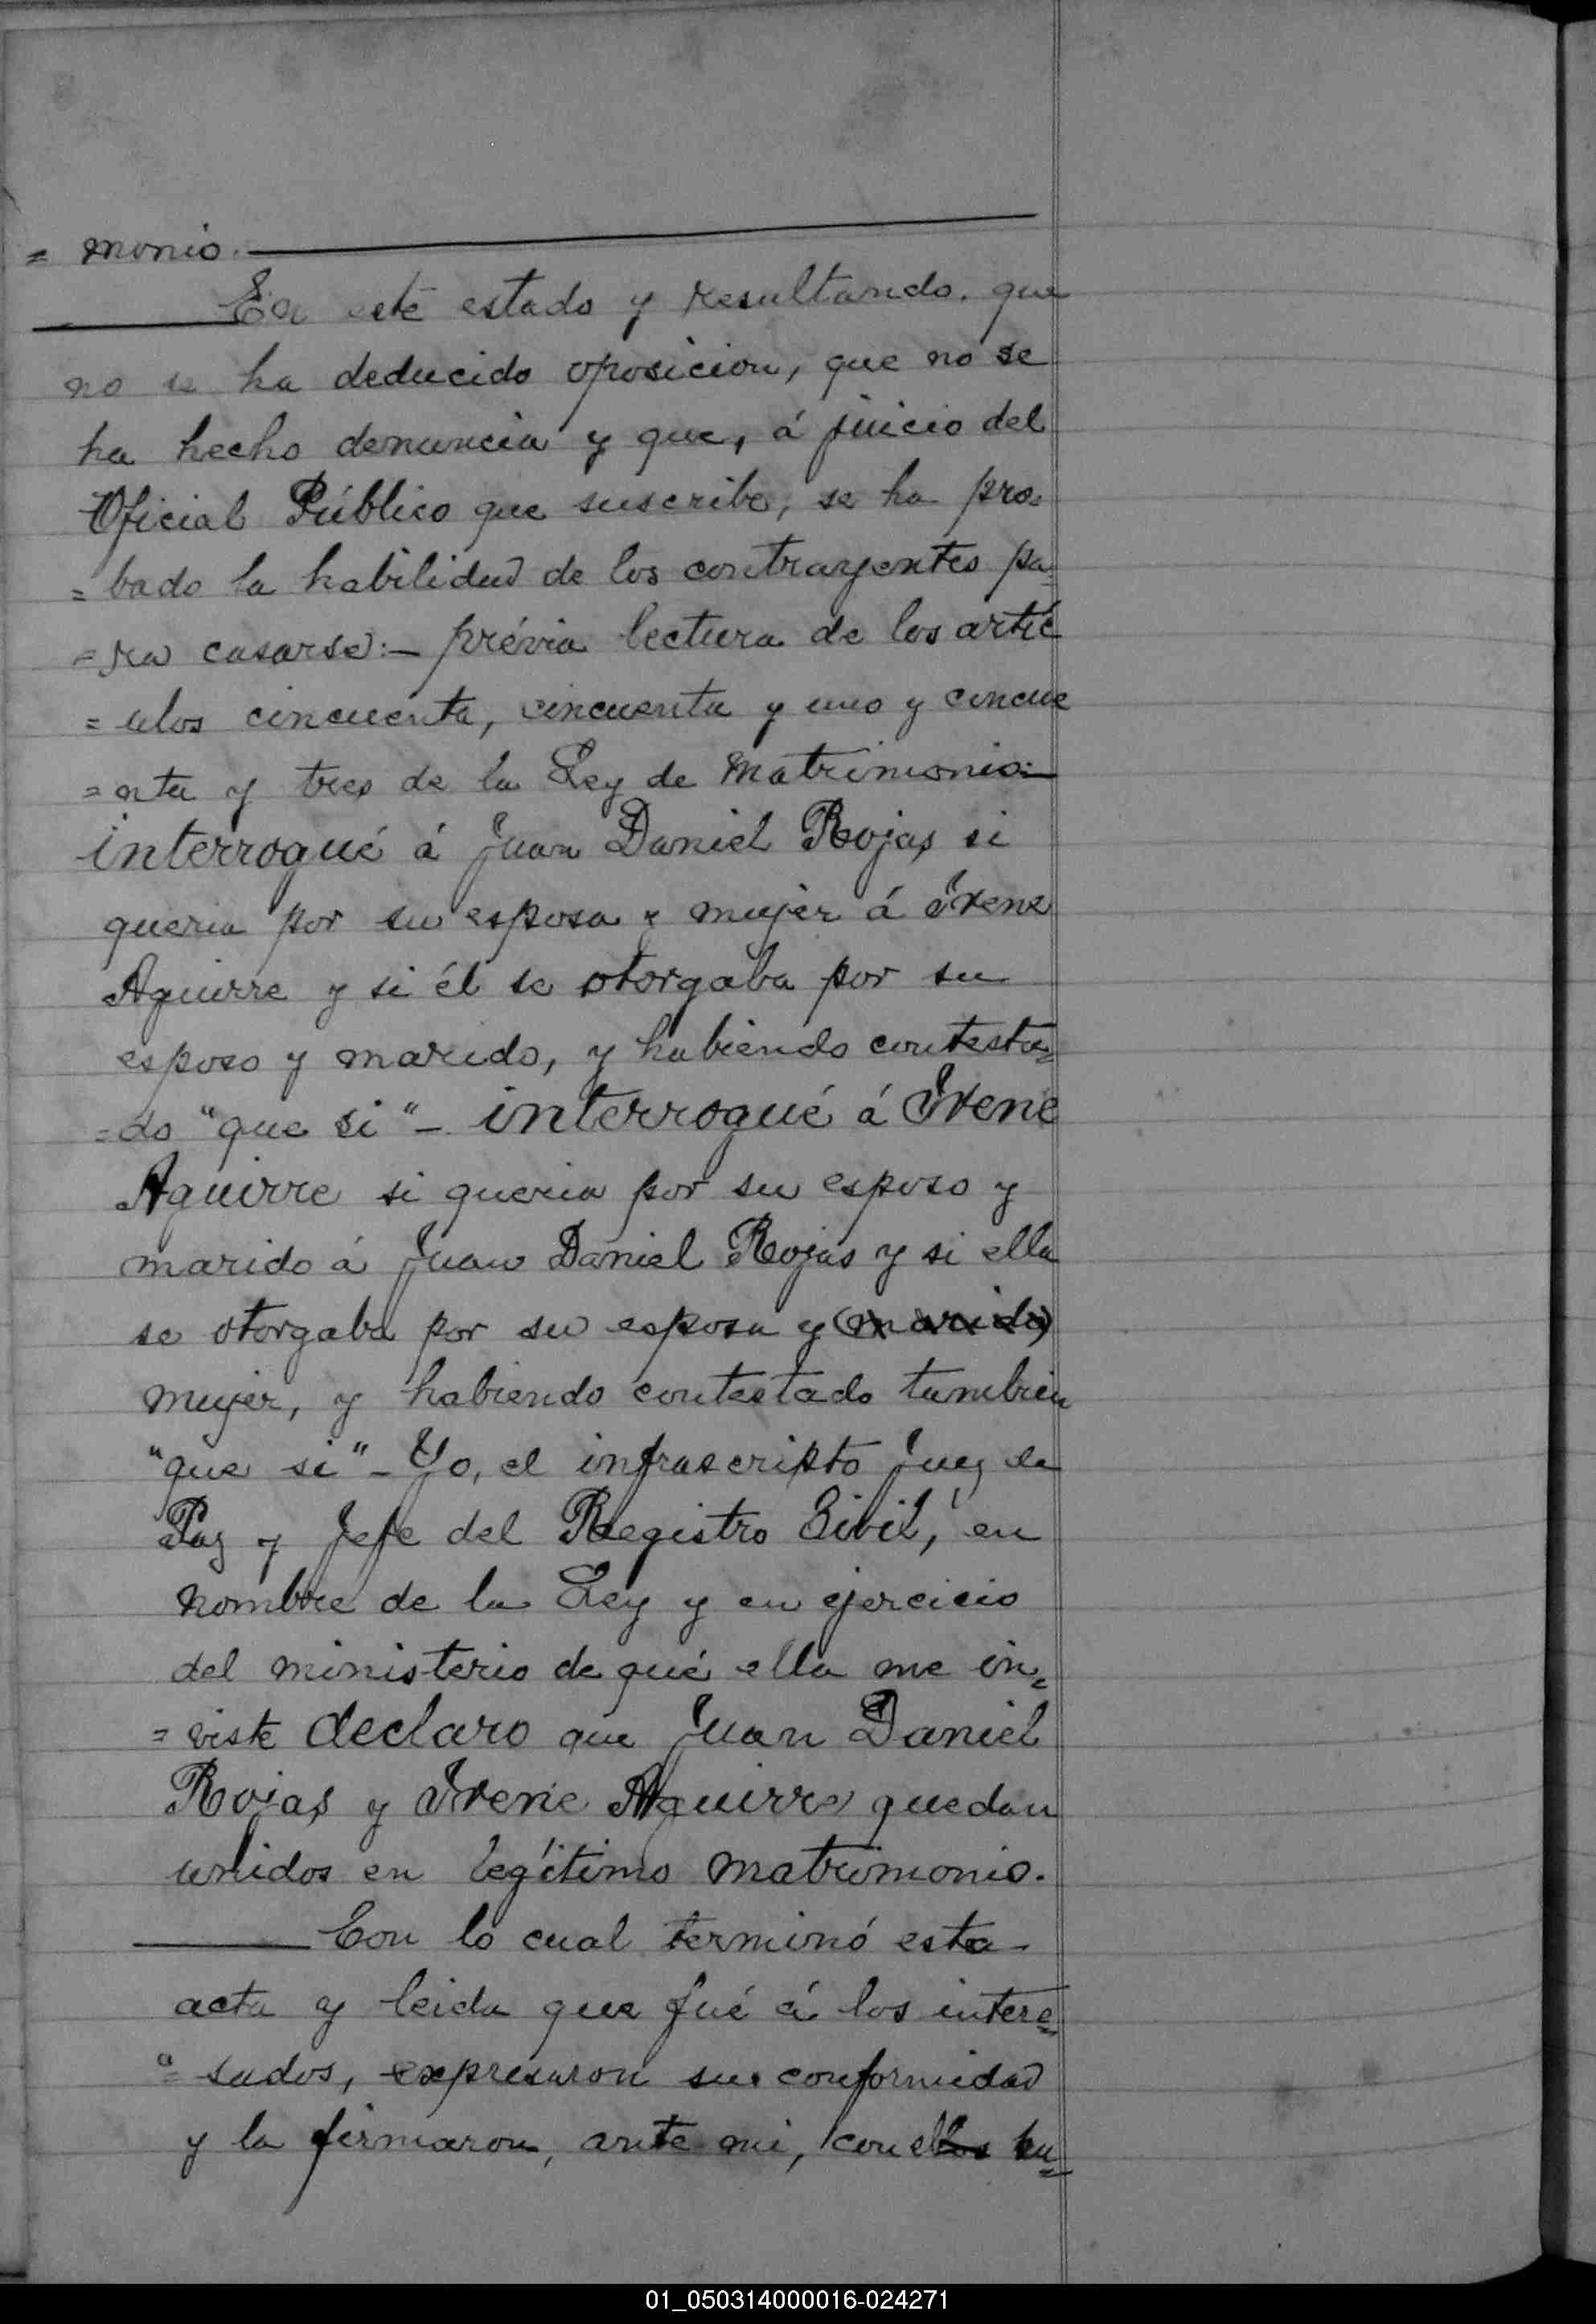 = monio.
En este estado y resultando. que
no se ha deducido oposicion, que no se
ha hecho denuncia y que, á juicio del
Oficial Público que suscribe, se ha pro=
= bado la habilidad de los contrayentes pa=
= ra casarse:- prévia lectura de los artíc
= ulos cincuenta, cincuenta y uno y cincue
= nta y tres de la Ley de Matrimonio:-
interrogué á Juan Daniel Rojas si
queria por su esposa y mujer á Irene
Aguirre y si él se otorgaba por su
esposo y marido, y habiendo contesta=
= do "que si" - interrogué á Irene
Aguirre si queria por su esposo y
marido á Juan Daniel Rojas y si ella
se otorgaba por su esposa y (marido)
mujer, y habiendo contestado tambien
"que si" - Yo, el infrascripto Juez de
Paz y Jefe del Registro Civil, en
nombre de la Ley y en ejercicio
del ministerio de qué ella me in=
= viste declaro que Juan Daniel
Rojas y Irene Aguirre quedan
unidos en legítimo matrimonio.
Con lo cual terminó esta
acta y leida que fué á los intere=
= sados, expresaron su conformidad
y la firmaron, ante mi, con ellos
01_050314000016-024271